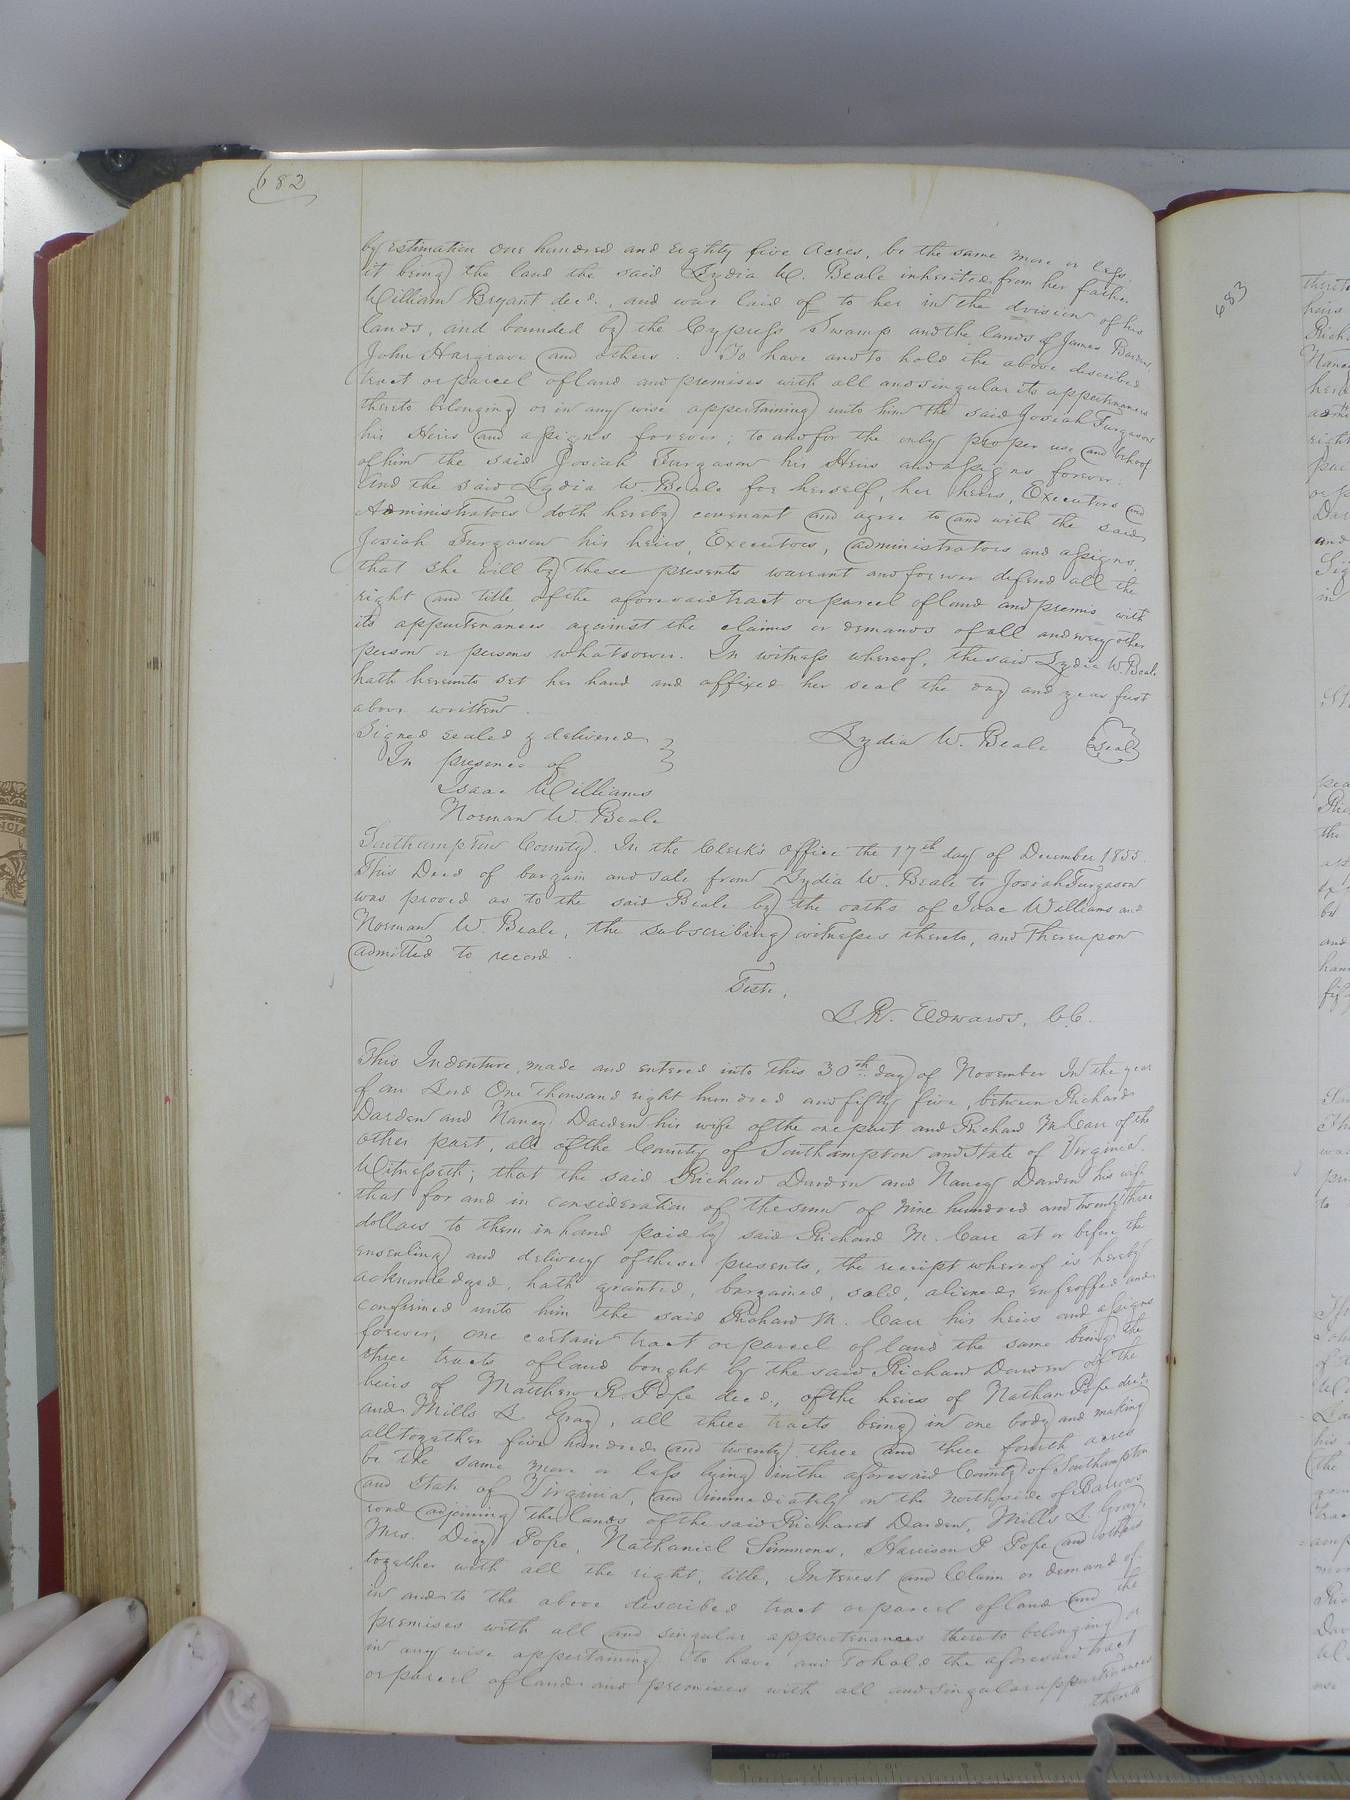 682
by estimation one hundred and eighty five acres, be the same more or less,
it being the land the said Lydia W. Beale inherited from her father
William Bryant decd., and was laid of to her in the division of his
lands, and bounded by the Cypress Swamp and the lands of James Barden,
John Hargrave and others. To have and to hold the above described
tract or parcel of land and premises with all and singular its appertenances
thereto belonging or in any wise appertaining unto him the said Josiah Furgason
his Heirs and assigns forever; to and for the only proper use and behoof
of him the said Josiah Furgason his Heirs and assigns forever.
And the said Lydia W. Beale for herself, her heirs, Executors and
Administrators doth hereby covenant and agree to and with the said
Josiah Furgason his heirs, Executors, administrators and assigns,
that she will by these presents warrant and forever defend all the
right and title of the aforesaid tract or parcel of land and premis with
its appurtenances against the claims or demands of all and every other
person or persons whatsoever. In witness whereof, the said Lydia W. Beale
hath hereunto set her hand and affixed her seal the day and year first
above written.
Signed sealed & delivered
Lydia W. Beale Seal
In presence of
Isaac Williams
Norman W. Beale
Southampton County. In the Clerk's office the 17th day of December 1855.
This Deed of bargain and sale from Lydia W. Beale to Josiah Furgason
was proved as to the said Beale by the oaths of Isaac Williams and
Norman W. Beale, the subscribing witnesses thereto, and thereupon
admitted to record.
Teste,
L. R. Edwards, C.C.
This Indenture, made and entered into this 30th day of November In the year
of our Lord One thousand eight hundred and fifty five, between Richard
Darden and Nancy Darden his wife of the one part and Richard M. Carr of the
other part, all of the County of Southampton and State of Virginia.
Witnesseth; that the said Richard Darden and Nancy Darden his wife
that for and in consideration of the sum of nine hundred and twenty three
dollars to them in hand paid by said Richard M. Carr at or before the
ensealing and delivery of these presents, the receipt whereof is hereby
acknowledged, hath granted, bargained, sold, aliened, enfeoffed and
confirmed unto him the said Richard M. Carr his heirs and assigns
forever, one certain tract or parcel of land the same being the
three tracts of land bought by the said Richard Darden of the
heirs of Matthew R. Pope decd., of the heirs of Nathan Pope decd.
and Mills L. Gray, all three tracts being in one body and making
alltogather five hundred and twenty three and three fourth acres
be the same more or less lying in the aforesaid County of Southampton
and State of Virginia, and immediately on the North side of Barrows
road adjoining the lands of the said Richard Darden, Mills L. Gray,
Mrs. Dicy Pope, Nathaniel Simmons, Harrison P. Pope and others
togather with all the right, title, Interest and Claim or demand of
in and to the above described tract or parcel of land and the
premises with all and singular appurtenances thereto belonging or
in any wise appertaining to have and to hold the aforesaid tract
or parcel of land and premises with all and singular appurtenances
thereto
683